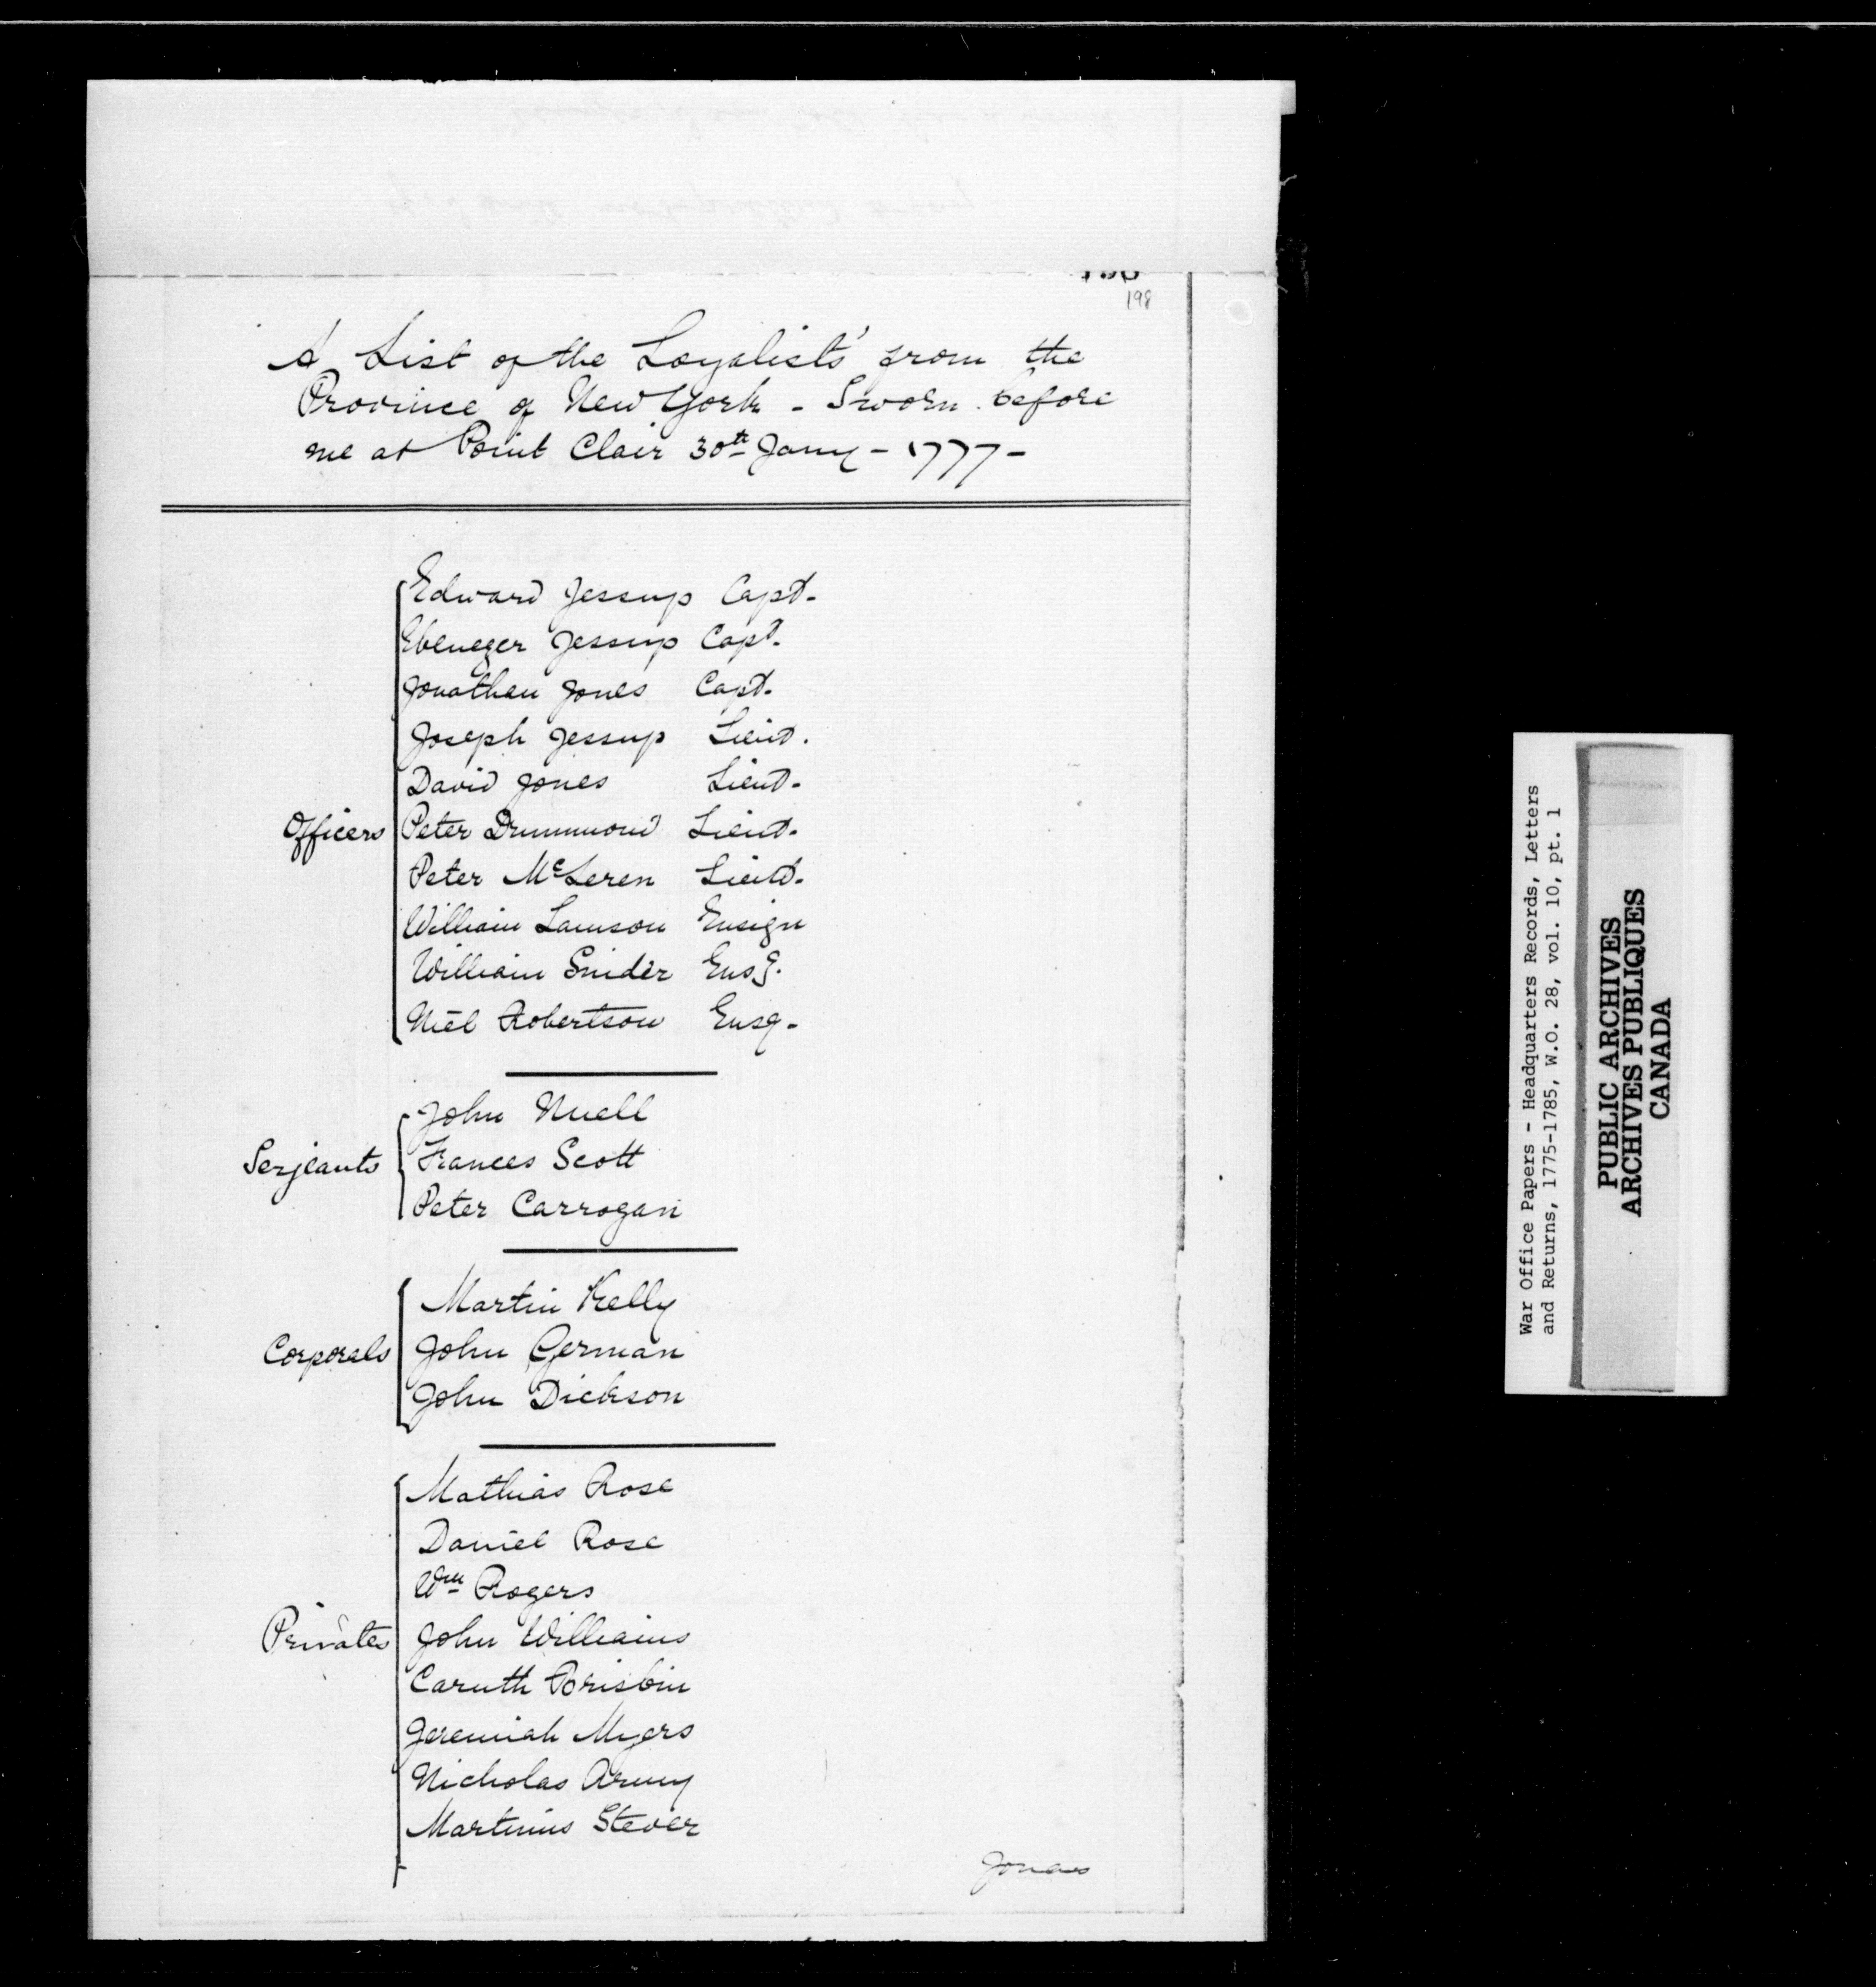 198
A List of the Loyalists' from the
Province of New York - Sworn before
me at Point Clair 30th Jany - 1777 -
Edward Jessup Capt.
Ebenezer Jessup Capt.
Jonathan Jones Capt.
Joseph Jessup Lieut.
David Jones Lieut.
Officers Peter Drummond Lieut.
Peter McLeren Lieut.
William Lamson Ensign
William Snider Ensg.
Niel Robertson Ensg.
John Nuell
Serjeants Frances Scott
Peter Carrogan
Martin Kelly
Corporals John German
John Dickson
Mathias Rose
Daniel Rose
Wm Rogers
Privates John Williams
Caruth Brisbin
Jeremiah Myers
Nicholas Army
Martinus Stever
Jonas
War Office Papers - Headquarters Records, Letters
and Returns, 1775-1785, W.O. 28, vol. 10, pt. 1
PUBLIC ARCHIVES
ARCHIVES PUBLIQUES
CANADA